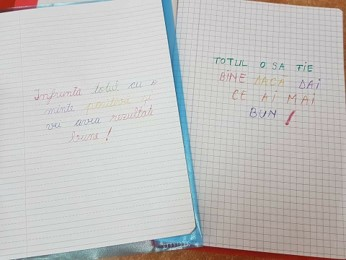 Înfrunta totul cu o
minte pozitiva și
vei avea rezultate
bune!
TOTUL O SA TIE
BINE DACA DAI
CE AI MAI
BUN!